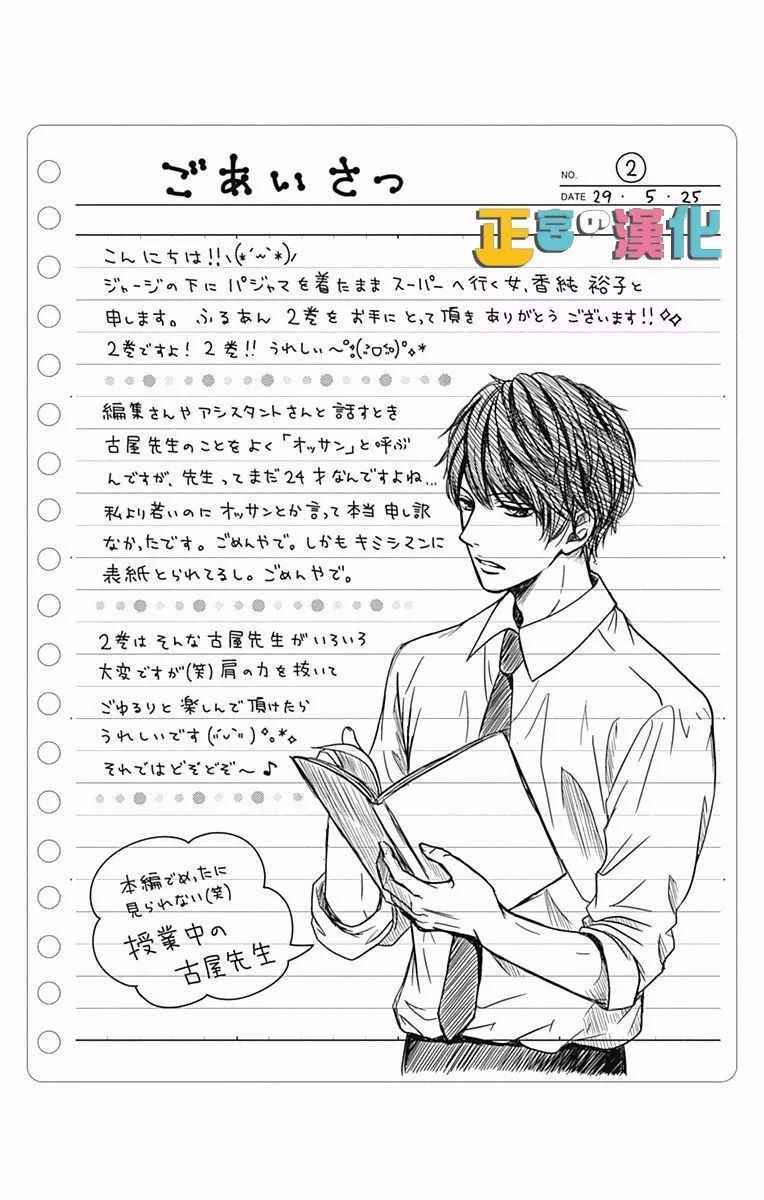 ごあいさつ
NO. ②
DATE 29・5・25
正宮の漢化
こんにちは!!ヽ(*´ｰ`*)ﾉ
ジャージの下にパジャマを着たままスーパーへ行く女、香純裕子と
申します。ふるあん2巻をお手にとって頂きありがとうございます!!✧✧
2巻ですよ!2巻!!うれしい〜
編集さんやアシスタントさんと話すとき
古屋先生のことをよく「オッサン」と呼ぶ
んですが、先生ってまだ24才なんですよね…
私より若いのにオッサンとか言って本当申し訳
なかったです。ごめんやで。しかもキミシマンに
表紙とられてるし。ごめんやで。
2巻はそんな古屋先生がいろいろ
大変ですが(笑)肩の力を抜いて
ごゆるりと楽しんで頂けたら
うれしいです
それではどぞどぞ〜♪
本編でめったに
見られない(笑)
授業中の
古屋先生